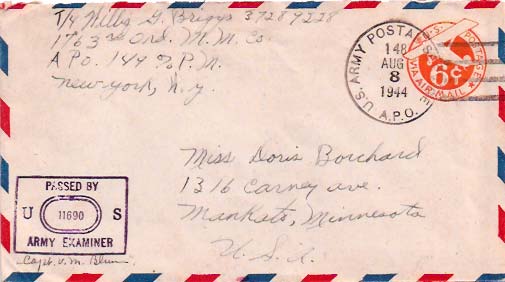 T/4 Willis G. Briggs 37287228
1763rd Ord. M. M. Co.
A.P.O. 149 % P.M.
New York, N.Y.
U.S. ARMY POSTAL SERVICE
148
AUG
8
1944
A.P.O.
U.S. POSTAGE
6¢
VIA AIR MAIL
Miss Doris Borchard
1316 Carney ave.
Mankato, Minnesota
U.S.A.
PASSED BY
U 11690 S
ARMY EXAMINER
Capt. V. M. Blum